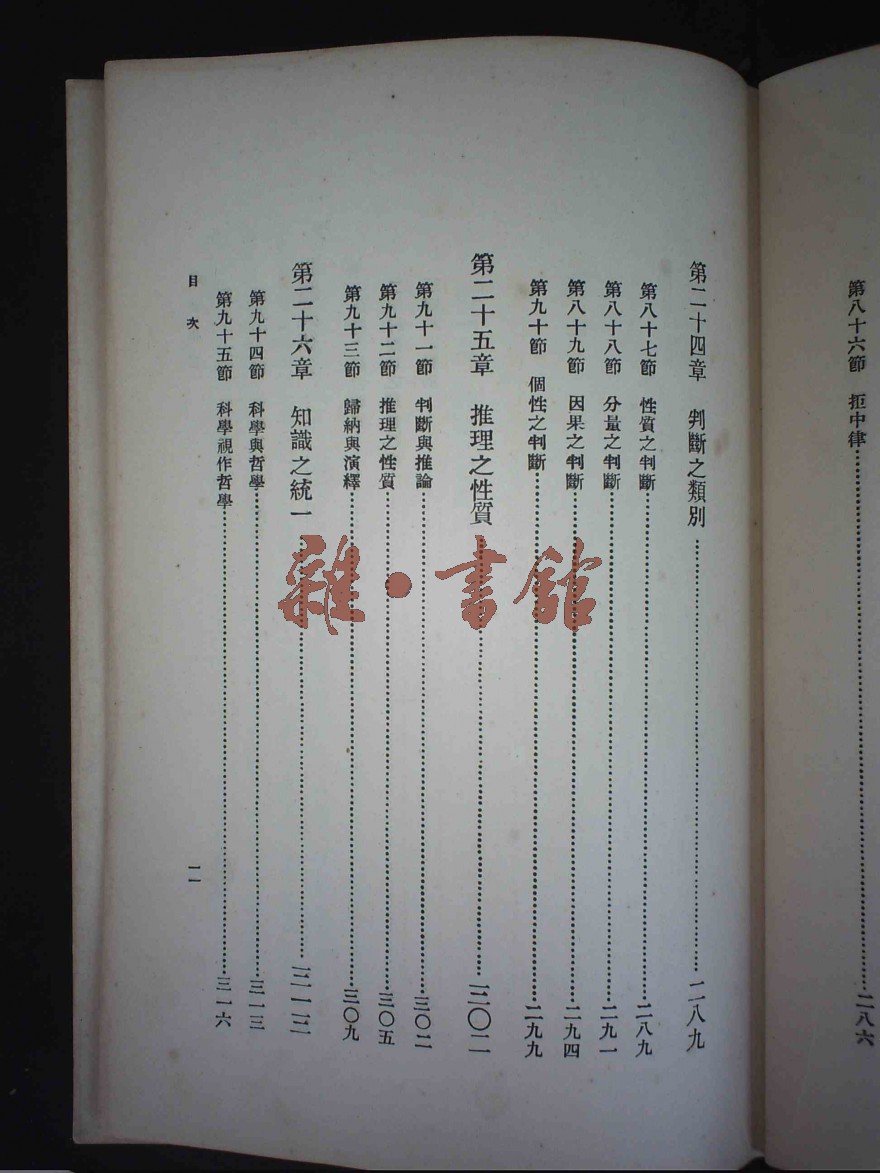 第八十六節　拒中律……二八六
第二十四章　判斷之類別……二八九
第八十七節　性質之判斷……二八九
第八十八節　分量之判斷……二九一
第八十九節　因果之判斷……二九四
第九十節　個性之判斷……二九九
第二十五章　推理之性質……三〇二
第九十一節　判斷與推論……三〇二
第九十二節　推理之性質……三〇五
第九十三節　歸納與演釋……三〇九
第二十六章　知識之統一……三一三
第九十四節　科學與哲學……三一三
第九十五節　科學視作哲學……三一六
目次
一一
雜·書館